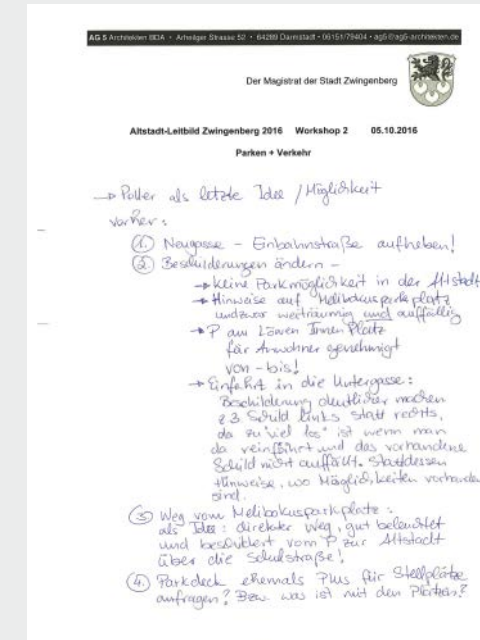 AG 5 Architekten BDA • Arheilger Strasse 52 • 64289 Darmstadt • 06151/79404 • ag5@ag5-architekten.de
Der Magistrat der Stadt Zwingenberg
Altstadt-Leitbild Zwingenberg 2016 Workshop 2 05.10.2016
Parken + Verkehr
→ Poller als letzte Idee / Möglichkeit
vorher:
1. Neugasse – Einbahnstraße aufheben!
2. Beschilderungen ändern –
→ keine Parkmöglichkeit in der Altstadt
→ Hinweise auf Melibokusparkplatz
und zwar weiträumig und auffällig
→ P am Löwen Platz
für Anwohner genehmigt
von – bis!
→ Einfahrt in die Untergasse:
Beschilderung deutlicher machen
z.B. Schild links statt rechts,
da zu "viel los" ist wenn man
da reinfährt und das vorhandene
Schild nicht auffällt. Stattdessen
Hinweise, wo Möglichkeiten vorhanden
sind.
3. Weg vom Melibokusparkplatz:
als Idee: direkter Weg, gut beleuchtet
und beschildert vom P zur Altstadt
über die Schulstraße!
4. Parkdeck ehemals Plus für Stellplätze
anfragen? Bzw. was ist mit den Plätzen?